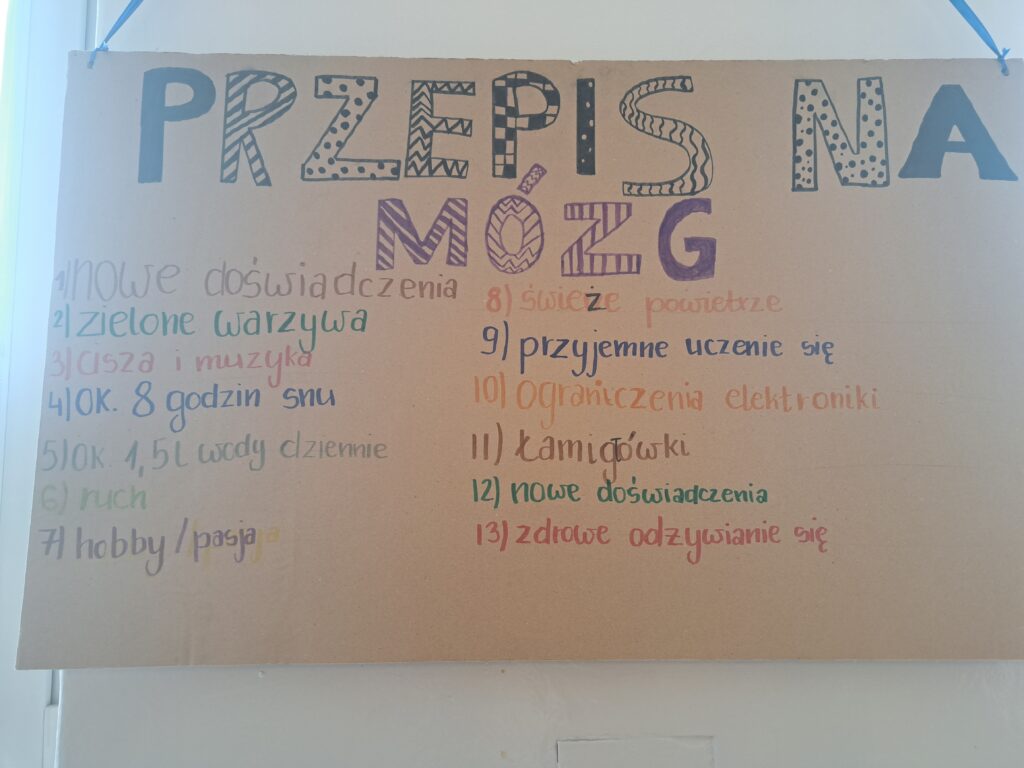 PRZEPIS NA
MÓZG
1) nowe doświadczenia
2) zielone warzywa
3) cisza i muzyka
4) OK. 8 godzin snu
5) OK. 1,5 L wody dziennie
6) ruch
7) hobby / pasja
8) świeże powietrze
9) przyjemne uczenie się
10) ograniczenia elektroniki
11) łamigłówki
12) nowe doświadczenia
13) zdrowe odżywianie się